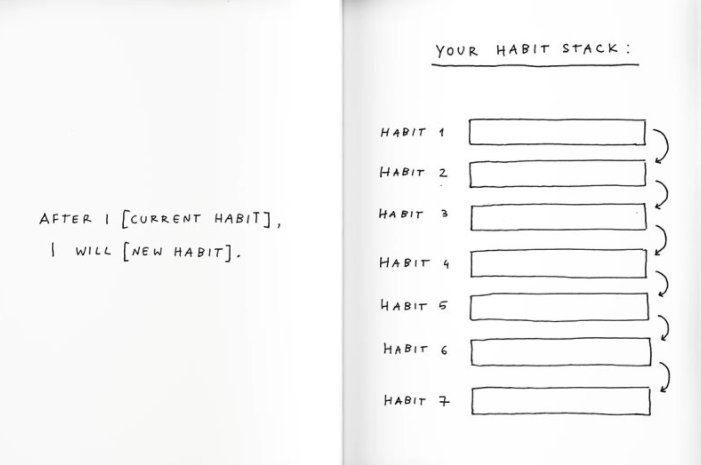 AFTER I [CURRENT HABIT],
I WILL [NEW HABIT].
YOUR HABIT STACK:
HABIT 1
HABIT 2
HABIT 3
HABIT 4
HABIT 5
HABIT 6
HABIT 7